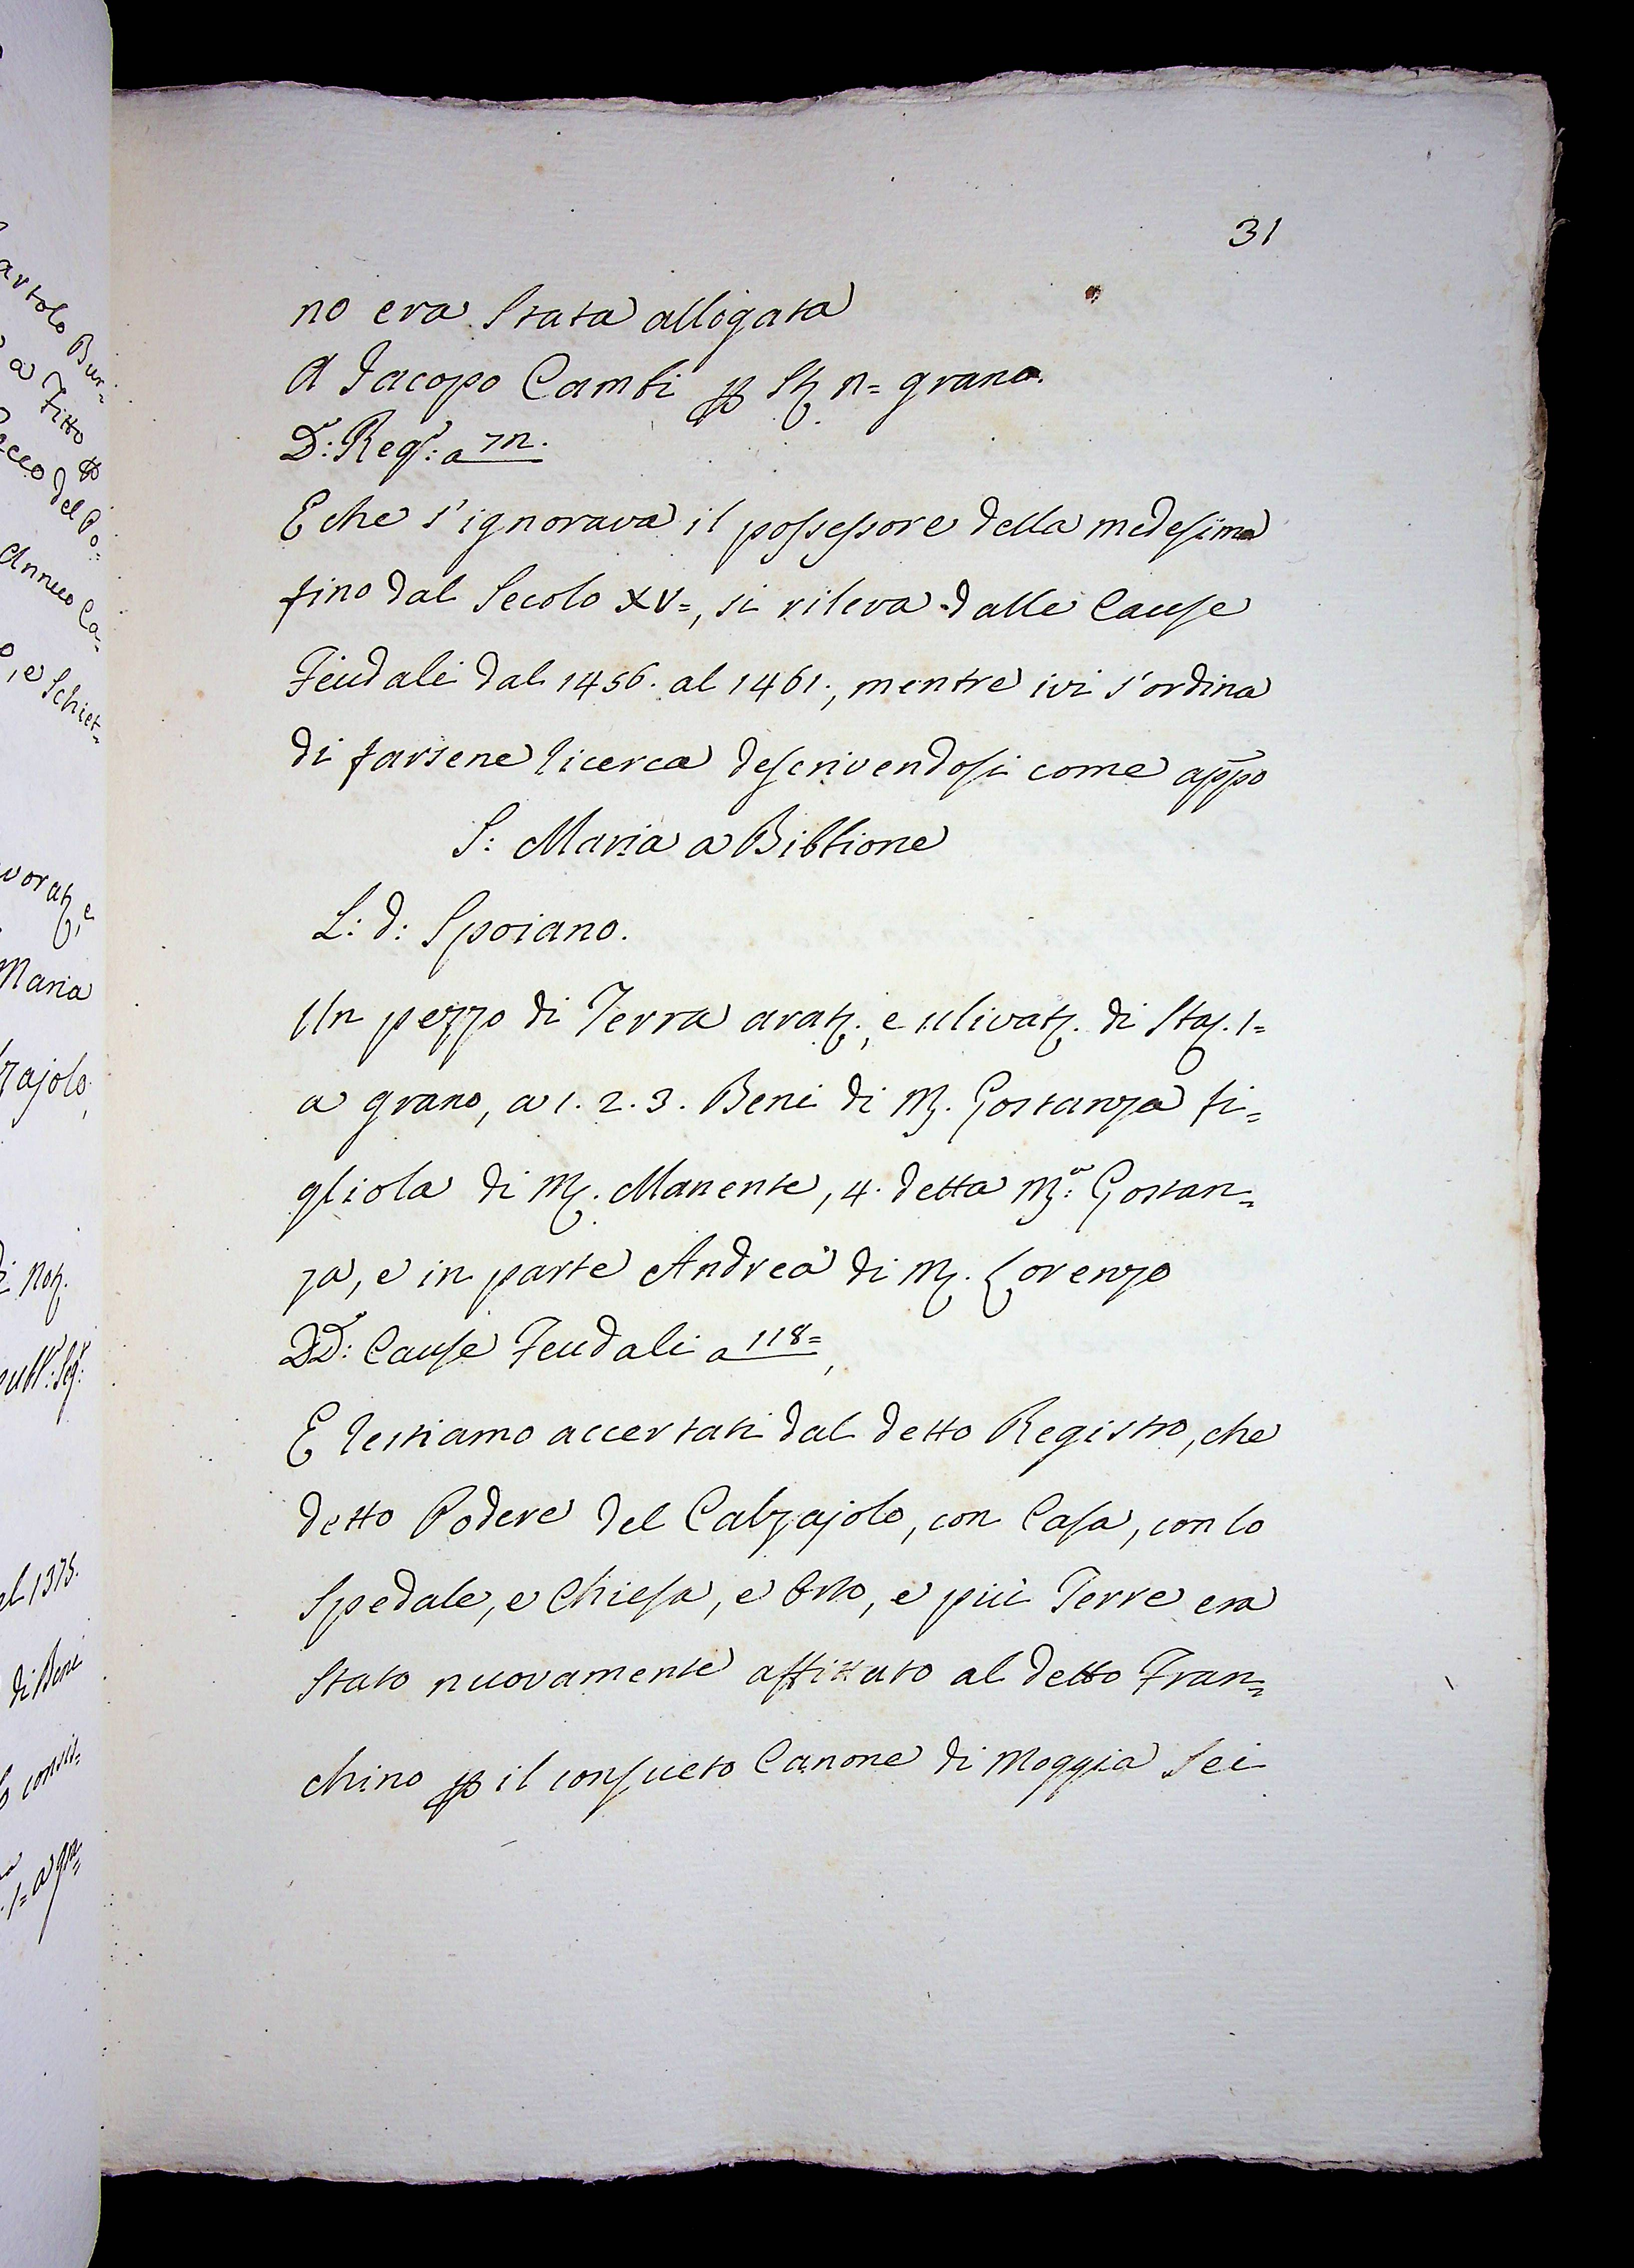 31
no era Stata allogata
A Jacopo Cambi p St. n= grano.
D.o: Reg.o: a 72.
E che s'ignorava il possessore della medesima
fino dal Secolo XV=, si rileva dalle Cause
Feudali dal 1456. al 1461., mentre ivi s'ordina
di farsene ricerca descrivendosi come app.o
S: Maria a Bibbione
L: d: Spoiano.
Un pezzo di Terra arat., e ulivat. di Sta. 1=
a grano, a 1. 2. 3. Beni di M. Gostanza fi=
gliola di M. Manente, 4. detta M.a: Gostan=
za, e in parte Andrea di M. Lorenzo
DD.e: Cause Feudali a 118=,
E restiamo accertati dal detto Registro, che
detto Podere del Calzajolo, con Casa, con lo
Spedale, e Chiesa, e Orto, e più Terre era
Stato nuovamente affittato al detto Fran=
chino p il consueto Canone di Moggia Sei
artolo Bur=
a Fitto
del Po=
Ca=
, e Schiet=
vorat., e
Maria
zajolo
Not.
al 1375.
di Beni
consis=
1= a gra=